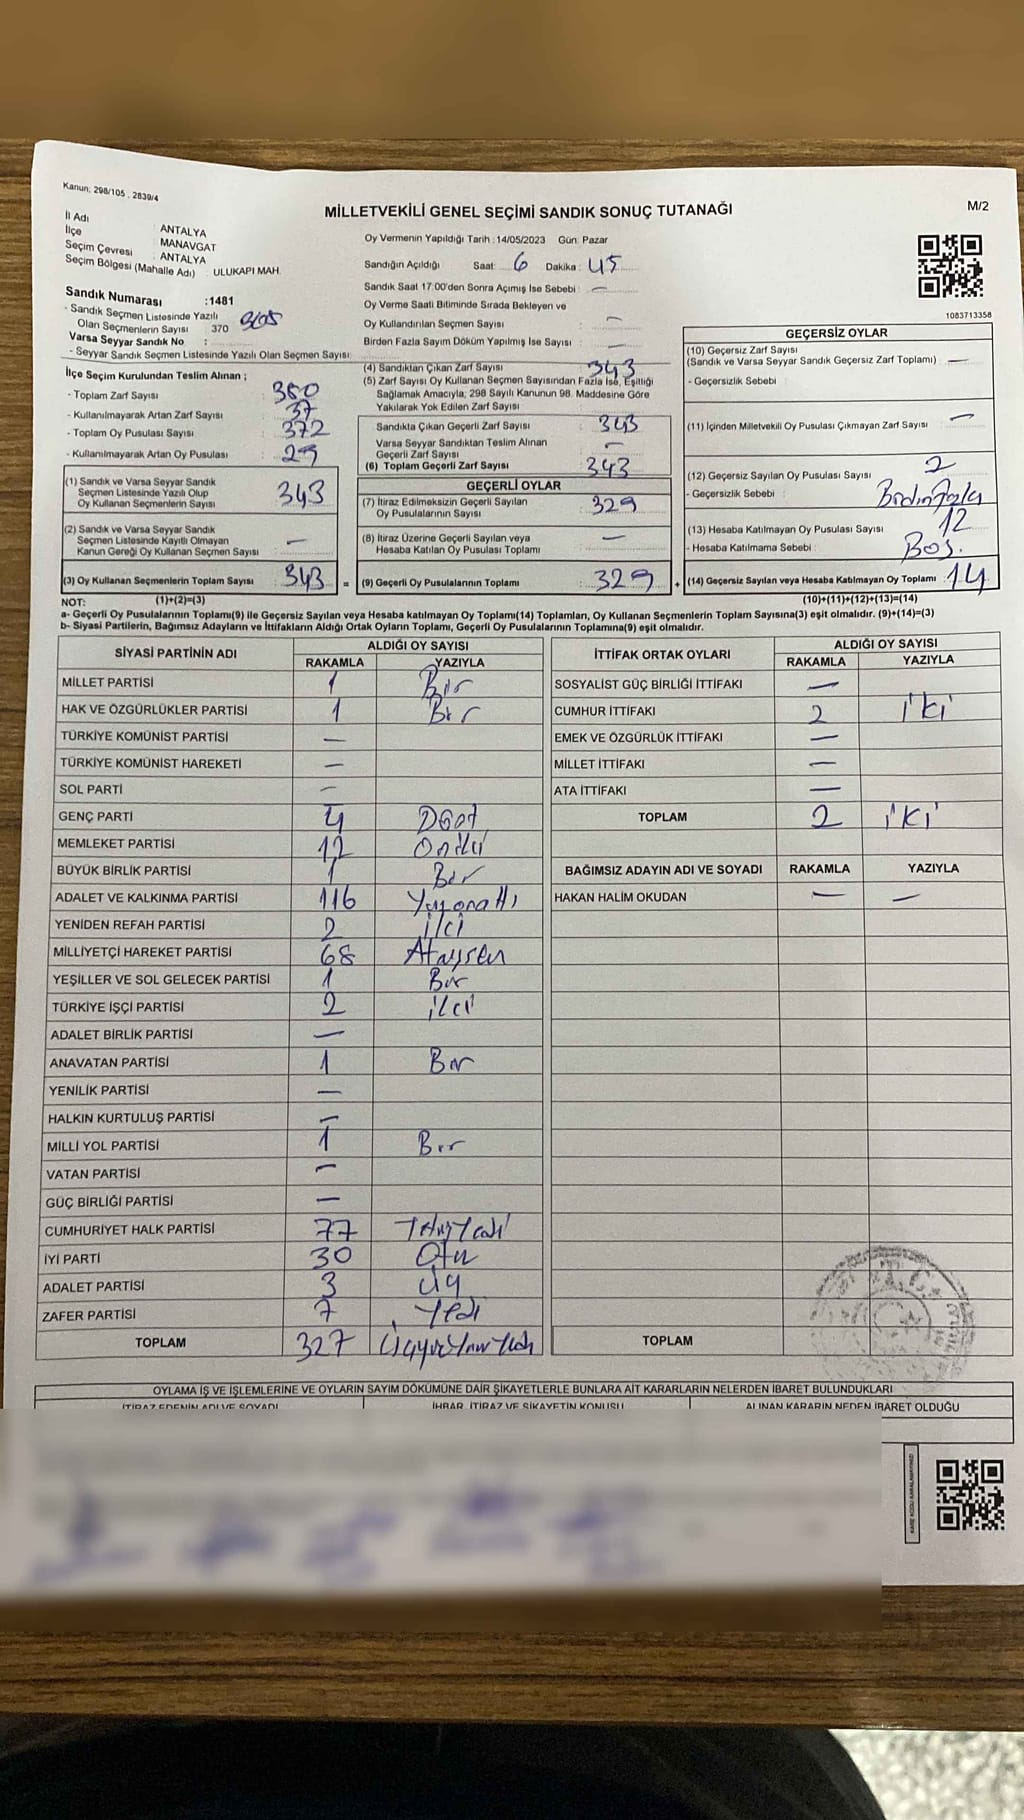 Kanun: 298/105 , 2839/4
MİLLETVEKİLİ GENEL SEÇİMİ SANDIK SONUÇ TUTANAĞI
M/2
İl Adı ANTALYA
İlçe MANAVGAT
Seçim Çevresi : ANTALYA
Seçim Bölgesi (Mahalle Adı) : ULUKAPI MAH.
Sandık Numarası :1481
- Sandık Seçmen Listesinde Yazılı
Olan Seçmenlerin Sayısı : 370
Varsa Seyyar Sandık No :
- Seyyar Sandık Seçmen Listesinde Yazılı Olan Seçmen Sayısı:
İlçe Seçim Kurulundan Teslim Alınan ;
- Toplam Zarf Sayısı : 380
- Kullanılmayarak Artan Zarf Sayısı : 37
- Toplam Oy Pusulası Sayısı : 372
- Kullanılmayarak Artan Oy Pusulası : 29
(1) Sandık ve Varsa Seyyar Sandık
Seçmen Listesinde Yazılı Olup
Oy Kullanan Seçmenlerin Sayısı : 343
(2) Sandık ve Varsa Seyyar Sandık
Seçmen Listesinde Kayıtlı Olmayan
Kanun Gereği Oy Kullanan Seçmen Sayısı : —
(3) Oy Kullanan Seçmenlerin Toplam Sayısı : 343
Oy Vermenin Yapıldığı Tarih : 14/05/2023 Gün: Pazar
Sandığın Açıldığı Saat: 6 Dakika : 45
Sandık Saat 17:00'den Sonra Açımış İse Sebebi : —
Oy Verme Saati Bitiminde Sırada Bekleyen ve
Oy Kullandırılan Seçmen Sayısı : —
Birden Fazla Sayım Döküm Yapılmış İse Sayısı : —
(4) Sandıktan Çıkan Zarf Sayısı : 343
(5) Zarf Sayısı Oy Kullanan Seçmen Sayısından Fazla İse, Eşitliği
Sağlamak Amacıyla, 298 Sayılı Kanunun 98. Maddesine Göre
Yakılarak Yok Edilen Zarf Sayısı :
Sandıkta Çıkan Geçerli Zarf Sayısı : 343
Varsa Seyyar Sandıktan Teslim Alınan
Geçerli Zarf Sayısı : —
(6) Toplam Geçerli Zarf Sayısı : 343
GEÇERLİ OYLAR
(7) İtiraz Edilmeksizin Geçerli Sayılan
Oy Pusulalarının Sayısı : 329
(8) İtiraz Üzerine Geçerli Sayılan veya
Hesaba Katılan Oy Pusulası Toplamı : —
= (9) Geçerli Oy Pusulalarının Toplamı : 329
1083713358
GEÇERSİZ OYLAR
(10) Geçersiz Zarf Sayısı
(Sandık ve Varsa Seyyar Sandık Geçersiz Zarf Toplamı) : —
- Geçersizlik Sebebi :
(11) İçinden Milletvekili Oy Pusulası Çıkmayan Zarf Sayısı : —
(12) Geçersiz Sayılan Oy Pusulası Sayısı : 2
- Geçersizlik Sebebi :
(13) Hesaba Katılmayan Oy Pusulası Sayısı : 12
- Hesaba Katılmama Sebebi : Boş.
+ (14) Geçersiz Sayılan veya Hesaba Katılmayan Oy Toplamı : 14
NOT: (1)+(2)=(3)
(10)+(11)+(12)+(13)=(14)
a- Geçerli Oy Pusulalarının Toplamı(9) ile Geçersiz Sayılan veya Hesaba katılmayan Oy Toplamı(14) Toplamları, Oy Kullanan Seçmenlerin Toplam Sayısına(3) eşit olmalıdır. (9)+(14)=(3)
b- Siyasi Partilerin, Bağımsız Adayların ve İttifakların Aldığı Ortak Oyların Toplamı, Geçerli Oy Pusulalarının Toplamına(9) eşit olmalıdır.
SİYASİ PARTİNİN ADI ALDIĞI OY SAYISI
RAKAMLA YAZIYLA
MİLLET PARTİSİ 1 Bir
HAK VE ÖZGÜRLÜKLER PARTİSİ 1 Bir
TÜRKİYE KOMÜNİST PARTİSİ —
TÜRKİYE KOMÜNİST HAREKETİ —
SOL PARTİ —
GENÇ PARTİ 4 Dört
MEMLEKET PARTİSİ 12 Oniki
BÜYÜK BİRLİK PARTİSİ 1 Bir
ADALET VE KALKINMA PARTİSİ 116 Yüzonaltı
YENİDEN REFAH PARTİSİ 2 iki
MİLLİYETÇİ HAREKET PARTİSİ 68
YEŞİLLER VE SOL GELECEK PARTİSİ 1 Bir
TÜRKİYE İŞÇİ PARTİSİ 2 iki
ADALET BİRLİK PARTİSİ —
ANAVATAN PARTİSİ 1 Bir
YENİLİK PARTİSİ —
HALKIN KURTULUŞ PARTİSİ —
MİLLİ YOL PARTİSİ 1 Bir
VATAN PARTİSİ —
GÜÇ BİRLİĞİ PARTİSİ —
CUMHURİYET HALK PARTİSİ 77
İYİ PARTİ 30 Otuz
ADALET PARTİSİ 3 Üç
ZAFER PARTİSİ 7 Yedi
TOPLAM 327
İTTİFAK ORTAK OYLARI ALDIĞI OY SAYISI
RAKAMLA YAZIYLA
SOSYALİST GÜÇ BİRLİĞİ İTTİFAKI —
CUMHUR İTTİFAKI 2 iki
EMEK VE ÖZGÜRLÜK İTTİFAKI —
MİLLET İTTİFAKI —
ATA İTTİFAKI —
TOPLAM 2 iki
BAĞIMSIZ ADAYIN ADI VE SOYADI RAKAMLA YAZIYLA
HAKAN HALİM OKUDAN — —
TOPLAM
T.C.
OYLAMA İŞ VE İŞLEMLERİNE VE OYLARIN SAYIM DÖKÜMÜNE DAİR ŞİKAYETLERLE BUNLARA AİT KARARLARIN NELERDEN İBARET BULUNDUKLARI
İTİRAZ EDENİN ADI VE SOYADI İHBAR, İTİRAZ VE ŞİKAYETİN KONUSU ALINAN KARARIN NEDEN İBARET OLDUĞU
KARE KODU KARALAMAYINIZ!